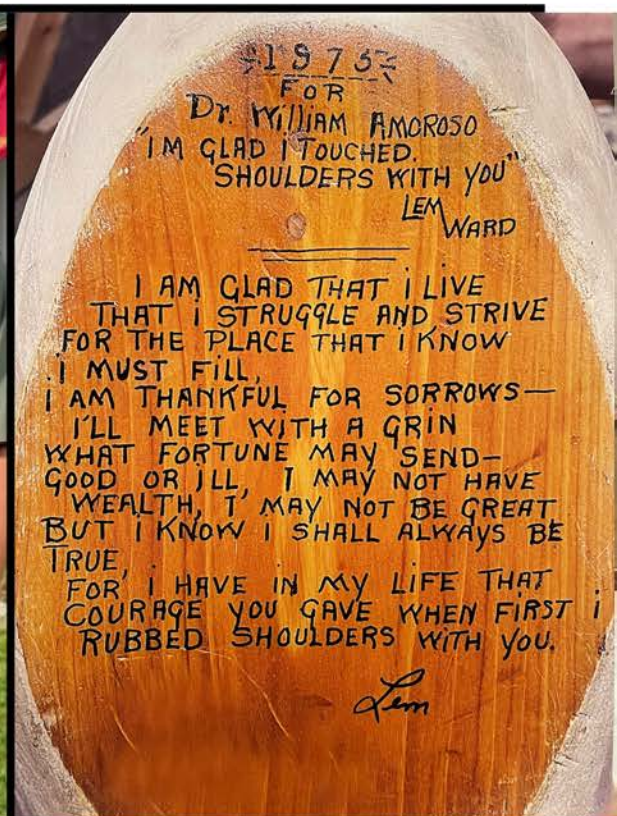 1975
FOR
Dr. WilliAM AMOROSO
"I'M GLAD I TOUCHED.
SHOULDERS WITH YOU"
LEM
WARD
I AM GLAD THAT i LIVE
THAT i STRUGGLE AND STRIVE
FOR THE PLACE THAT i KNOW
i MUST FiLL,
I AM THANKFUL FOR SORROWS—
I'LL MEET WiTH A GRIN
WHAT FORTUNE MAY SEND—
GOOD OR iLL, I MAY NOT HAVE
WEALTH, I MAY NOT BE GREAT
BUT i KNOW i SHALL ALWAYS BE
TRUE,
FOR i HAVE iN MY LiFE THAT
COURAGE YOU GAVE WHEN FIRST i
RUBBED SHOULDERS WiTH YOU.
Lem